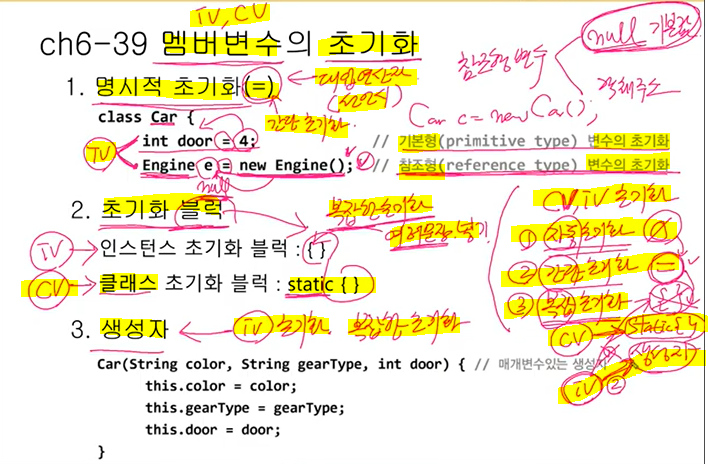 iv, cv
ch6-39 멤버변수의 초기화
null 기본값
참조형 변수
객체주소
1. 명시적 초기화(=)
대입연산자
(선언시)
Car c = new Car();
간단 초기화
class Car {
iv
int door = 4; // 기본형(primitive type) 변수의 초기화
Engine e = new Engine(); // 참조형(reference type) 변수의 초기화
null
2. 초기화 블럭
복잡한 초기화
여러문장 넣기
iv → 인스턴스 초기화 블럭 : { }
cv → 클래스 초기화 블럭 : static { }
cv, iv 초기화
① 자동초기화 0
② 간단초기화 =
③ 복잡초기화 { }
cv static { }
iv ② 생성자
3. 생성자 ← iv 초기화. 복잡한 초기화
Car(String color, String gearType, int door) { // 매개변수있는 생성자
this.color = color;
this.gearType = gearType;
this.door = door;
}